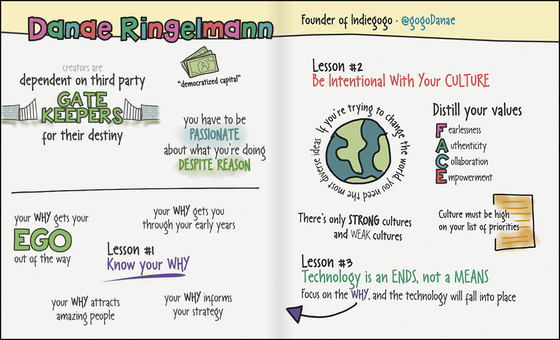 Danae Ringelmann
Founder of Indiegogo · @gogoDanae
creators are
dependent on third party
GATE
KEEPERS
for their destiny
"democratized capital"
you have to be
PASSIONATE
about what you're doing
DESPITE REASON
your WHY gets your
EGO
out of the way
your WHY gets you
through your early years
Lesson #1
Know your WHY
your WHY attracts
amazing people
your WHY informs
your strategy
Lesson #2
Be Intentional With Your CULTURE
If you're trying to change the world you need the most diverse ideas
Distill your values
Fearlessness
Authenticity
Collaboration
Empowerment
There's only STRONG cultures
and WEAK cultures
Culture must be high
on your list of priorities
Lesson #3
Technology is an ENDS, not a MEANS
Focus on the WHY, and the technology will fall into place